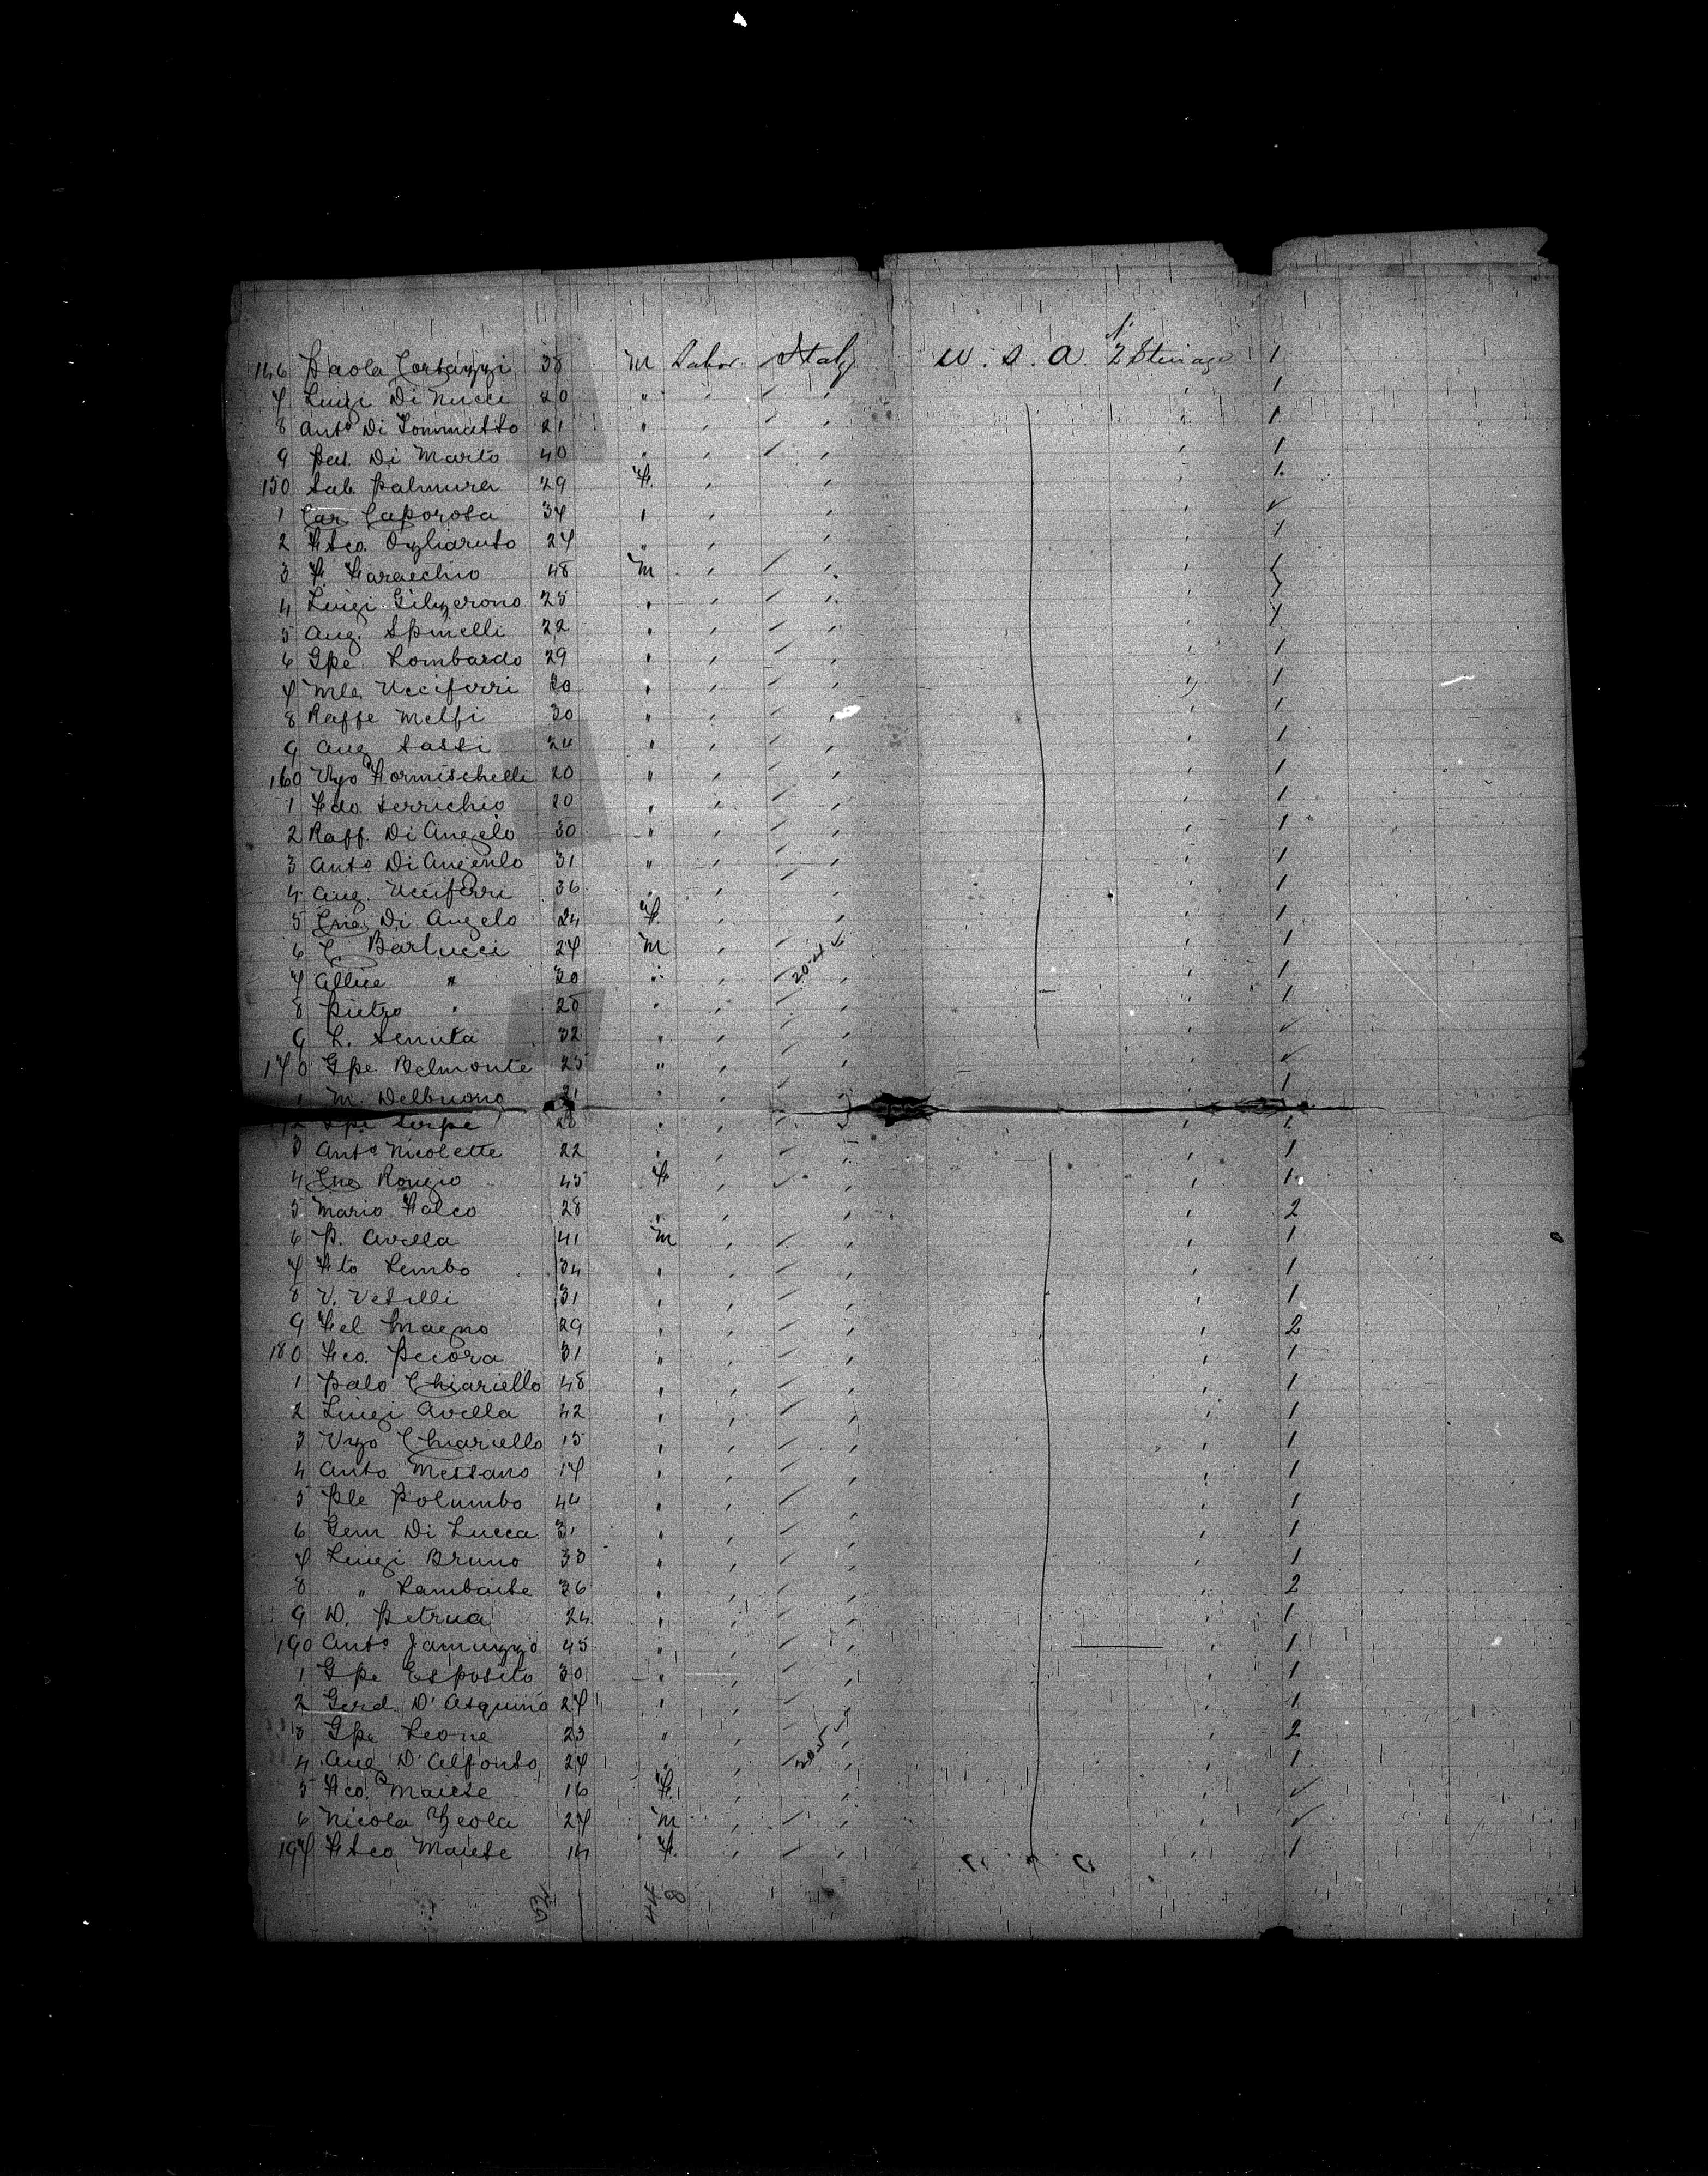 146 Paola Cortazzi 38 M Labor Italy U.S.A. 2 Steerage 1
7 Luigi Di Nucci 20 " 1
8 Anto Di Tommasso 21 " 1
9 Pas. Di Marto 40 " 1
150 Sab. Palmura 29 F. 1
1 Car. Caporosa 34
2 Fsco. Ogliaruso 27 " 1
3 F. Faraechio 48 M 1
4 Luigi 25
5 Aug. Spinelli 22 1
6 Gpe Lombardo 29 " 1
7 Mle Ucciferri 20 " 1
8 Raffe Melfi 30 " 1
9 Aug Sassi 24 " 1
160 Vzo Formischelli 20 " 1
1 Fdo Serrichio 20 " 1
2 Raff. Di Angelo 30 " 1
3 Anto Di Angenlo 31 " 1
4 Aug. Ucciferri 36 " 1
5 Di Angelo 24 F. 1
6 C Barlucci 27 M 1
7 Allice " 30 " 1
8 Pietro " 25 " 1
9 L. Senuta 32 "
170 Gpe Belmonte 25 "
1 M. Delbuono 21 " 1
2 Gpe Serpe 28
3 Anto Nicolette 22 " 1
4 Rongio 45 F. 1
5 Mario Falco 28 " 2
6 P. Avella 41 M 1
7 Fto Lembo 34 " 1
8 V. Veselli 31 " 1
9 Fel Magno 29 " 2
180 Fco. Pecora 31 " 1
1 Palo Chiariello 48 " 1
2 Luigi Avella 42 " 1
3 Vzo Chiariello 15 " 1
4 Anto Messano 17 " 1
5 Ple Polumbo 44 " 1
6 Gem Di Lucca 31 " 1
7 Luigi Bruno 33 " 1
8 " Lambaise 36 " 2
9 D. Petrua 24 " 1
190 Anto Jamuzzo 45 " 1
1 Gpe Esposito 30 " 1
2 Gerd. D'Asquino 27 " 1
3 Gpe Leone 23 " 2
4 Aug D'Alfonso 27 " 1
5 Fco. Maiese 16 F.
6 Nicola Zeola 27 M
197 Fsco Maiese 14 F. 1
52 44 8